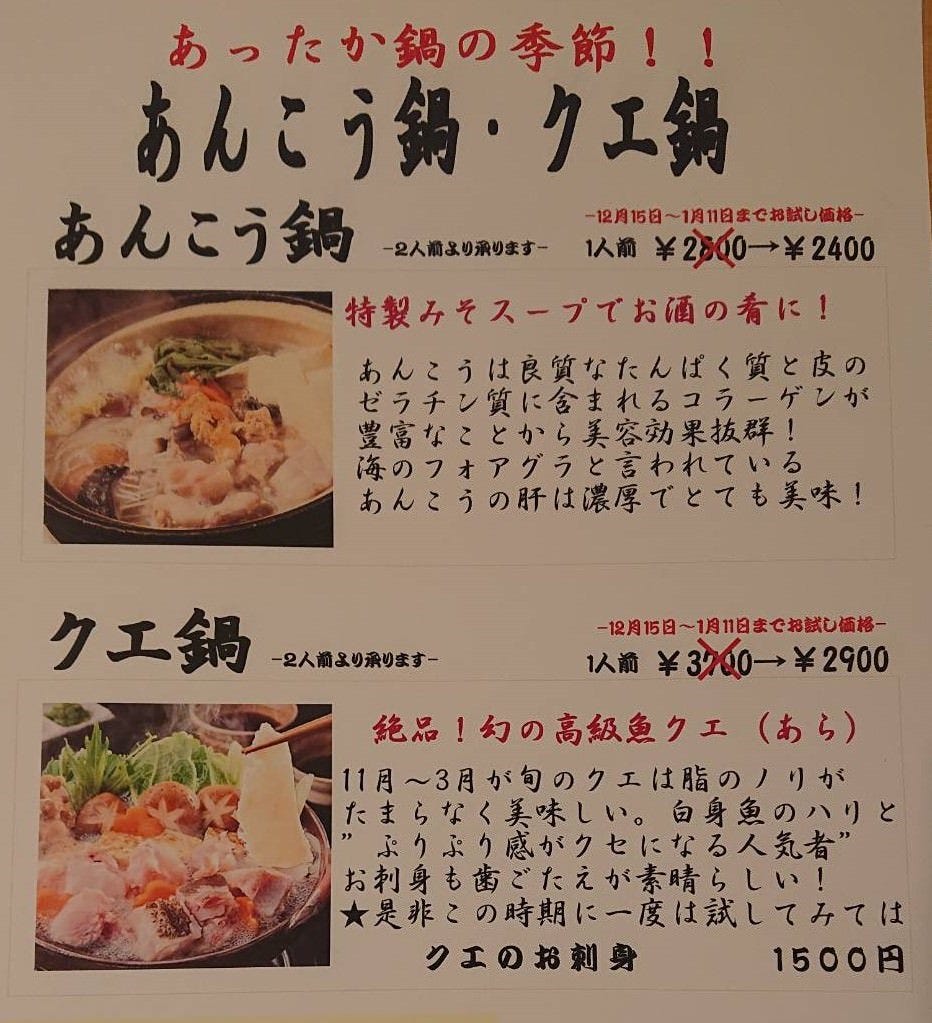 あったか鍋の季節！！
あんこう鍋・クエ鍋
あんこう鍋 −2人前より承ります−
−12月15日～1月11日までお試し価格−
1人前 ￥2800→￥2400
特製みそスープでお酒の肴に！
あんこうは良質なたんぱく質と皮の
ゼラチン質に含まれるコラーゲンが
豊富なことから美容効果抜群！
海のフォアグラと言われている
あんこうの肝は濃厚でとても美味！
クエ鍋 −2人前より承ります−
−12月15日～1月11日までお試し価格−
1人前 ￥3700→￥2900
絶品！幻の高級魚クエ（あら）
11月～3月が旬のクエは脂のノリが
たまらなく美味しい。白身魚のハリと
”ぷりぷり感がクセになる人気者”
お刺身も歯ごたえが素晴らしい！
★是非この時期に一度は試してみては
クエのお刺身 1500円